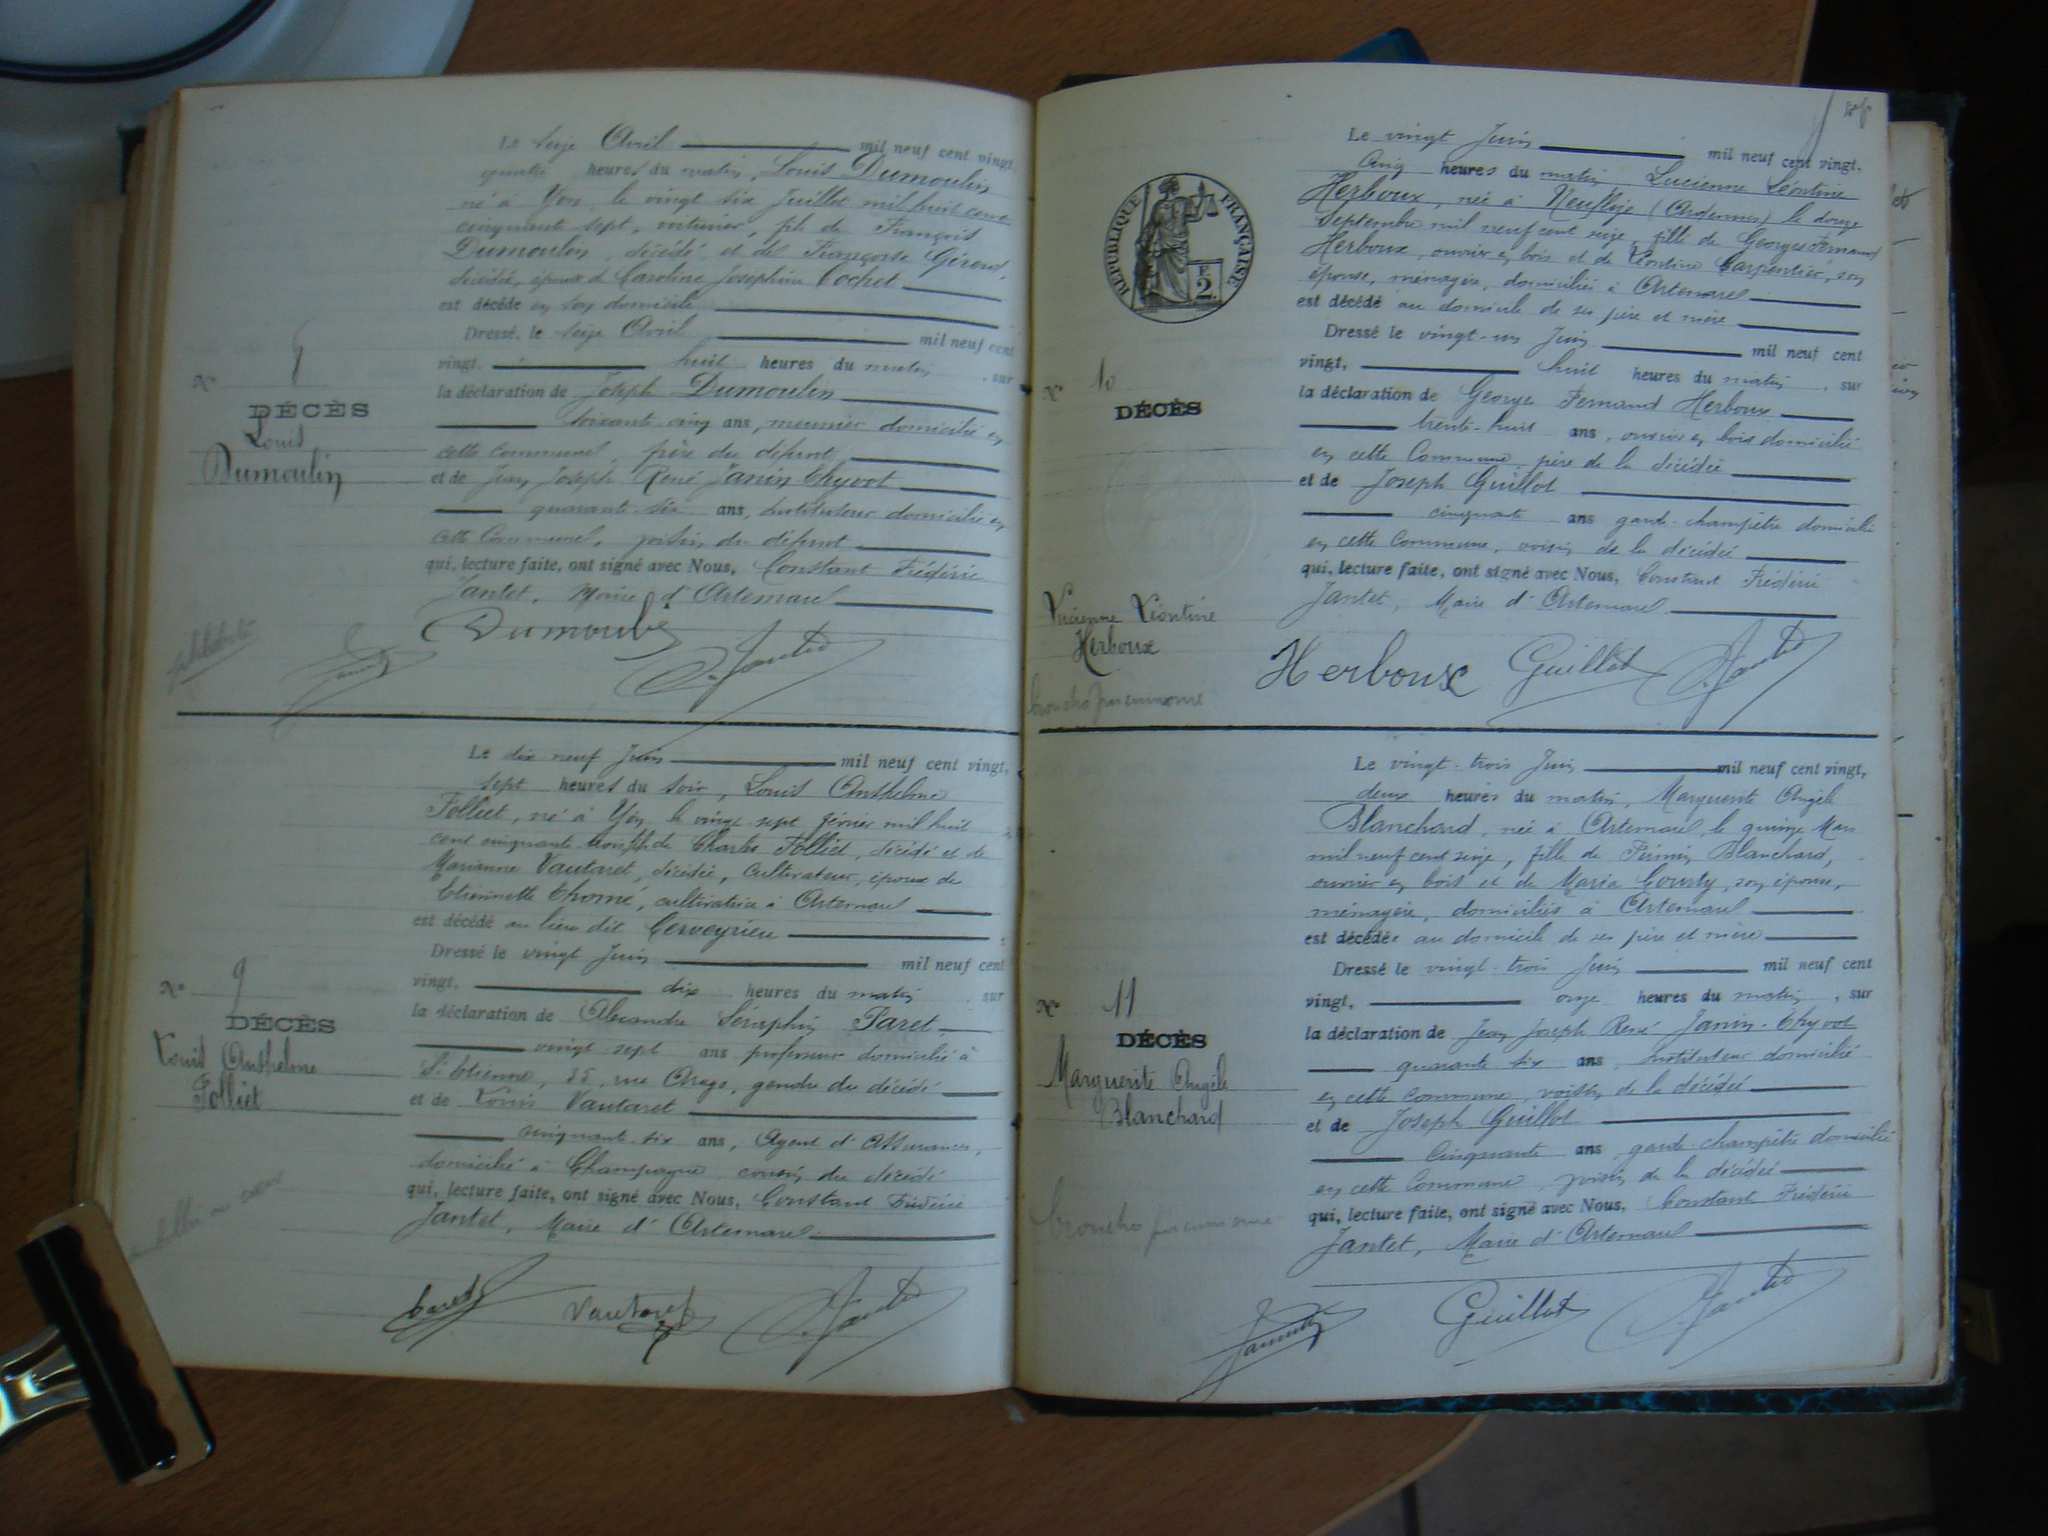 Le seize Avril mil neuf cent vingt,
quatre heures du matin, Louis Dumoulin
né à Yon, le vingt six Juillet mil huit cent
cinquante sept, voiturier, fils de François
Dumoulin, décédé, et de Françoise Girou,
décédée, époux de Caroline Josephine Cochet
est décédé en son domicile
Dressé, le seize Avril mil neuf cent
vingt, huit heures du matin, sur
la déclaration de Joseph Dumoulin
soixante cinq ans, meunier domicilié en
cette commune, frère du défunt,
et de Jean Joseph René Janin Thyvot
quarante six ans, instituteur domicilié en
cette Commune, voisin du défunt
qui, lecture faite, ont signé avec Nous, Constant Frédéric
Jantet, Maire d'Artemare
N° 8
DÉCÈS
Louis
Dumoulin
Dumoulin
C. Jantet
Le dix neuf Juin mil neuf cent vingt,
sept heures du soir, Louis Anthelme
Folliet, né à Yon le vingt sept février mil huit
cent cinquante trois, fils de Charles Folliet, décédé et de
Marianne Vautaret, décédée, Cultivateur, époux de
Etiennette Thomé, cultivatrice à Artemare
est décédé au lieu dit Cerveyrieu
Dressé le vingt Juin mil neuf cent
vingt, dix heures du matin, sur
la déclaration de Alexandre Séraphin Paret
vingt sept ans professeur domicilié à
St Etienne, 35, rue Arago, gendre du décédé
et de Louis Vautaret
cinquante-six ans, Agent d'Assurances,
domicilié à Champagne cousin du décédé
qui, lecture faite, ont signé avec Nous, Constant Frédéric
Jantet, Maire d'Artemare
N° 9
DÉCÈS
Louis Anthelme
Folliet
Paret
Vautaret
C. Jantet
Le vingt Juin mil neuf cent vingt,
cinq heures du matin Lucienne Léontine
Herboux, née à Neuflize (Ardennes) le douze
Septembre mil neuf cent seize, fille de Georges Fernand
Herboux, ouvrier en bois et de Léontine Carpentier, son
épouse, ménagère, domiciliés à Artemare
est décédé au domicile de ses père et mère
Dressé le vingt-un Juin mil neuf cent
vingt, huit heures du matin, sur
la déclaration de George Fernand Herboux
trente-huit ans, ouvrier en bois domicilié
en cette Commune père de la décédée
et de Joseph Guillot
cinquante ans garde-champêtre domicilié
en cette Commune, voisin de la décédée
qui, lecture faite, ont signé avec Nous, Constant Frédéric
Jantet, Maire d'Artemare
RÉPUBLIQUE FRANÇAISE
F.
2.
N° 10
DÉCÈS
Lucienne Léontine
Herboux
broncho pneumonie
Herboux Guillot C. Jantet
Le vingt-trois Juin mil neuf cent vingt,
deux heures du matin, Marguerite Angèle
Blanchard, née à Artemare, le quinze Mars
mil neuf cent seize, fille de Firmin Blanchard,
ouvrier en bois et de Maria Gourty, son épouse,
ménagère, domiciliés à Artemare
est décédée au domicile de ses père et mère
Dressé le vingt-trois Juin mil neuf cent
vingt, onze heures du matin, sur
la déclaration de Jean Joseph René Janin-Thyvot
quarante six ans, instituteur domicilié
en cette Commune, voisin de la décédée
et de Joseph Guillot
Cinquante ans, garde champêtre domicilié
en cette Commune, voisin de la décédée
qui, lecture faite, ont signé avec Nous, Constant Frédéric
Jantet, Maire d'Artemare
N° 11
DÉCÈS
Marguerite Angèle
Blanchard
broncho pneumonie
Guillot C. Jantet